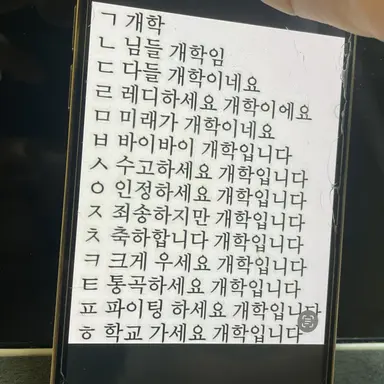 ㄱ 개학
ㄴ 님들 개학임
ㄷ 다들 개학이네요
ㄹ 레디하세요 개학이에요
ㅁ 미래가 개학이네요
ㅂ 바이바이 개학입니다
ㅅ 수고하세요 개학입니다
ㅇ 인정하세요 개학입니다
ㅈ 죄송하지만 개학입니다
ㅊ 축하합니다 개학입니다
ㅋ 크게 우세요 개학입니다
ㅌ 통곡하세요 개학입니다
ㅍ 파이팅 하세요 개학입니다
ㅎ 학교 가세요 개학입니다